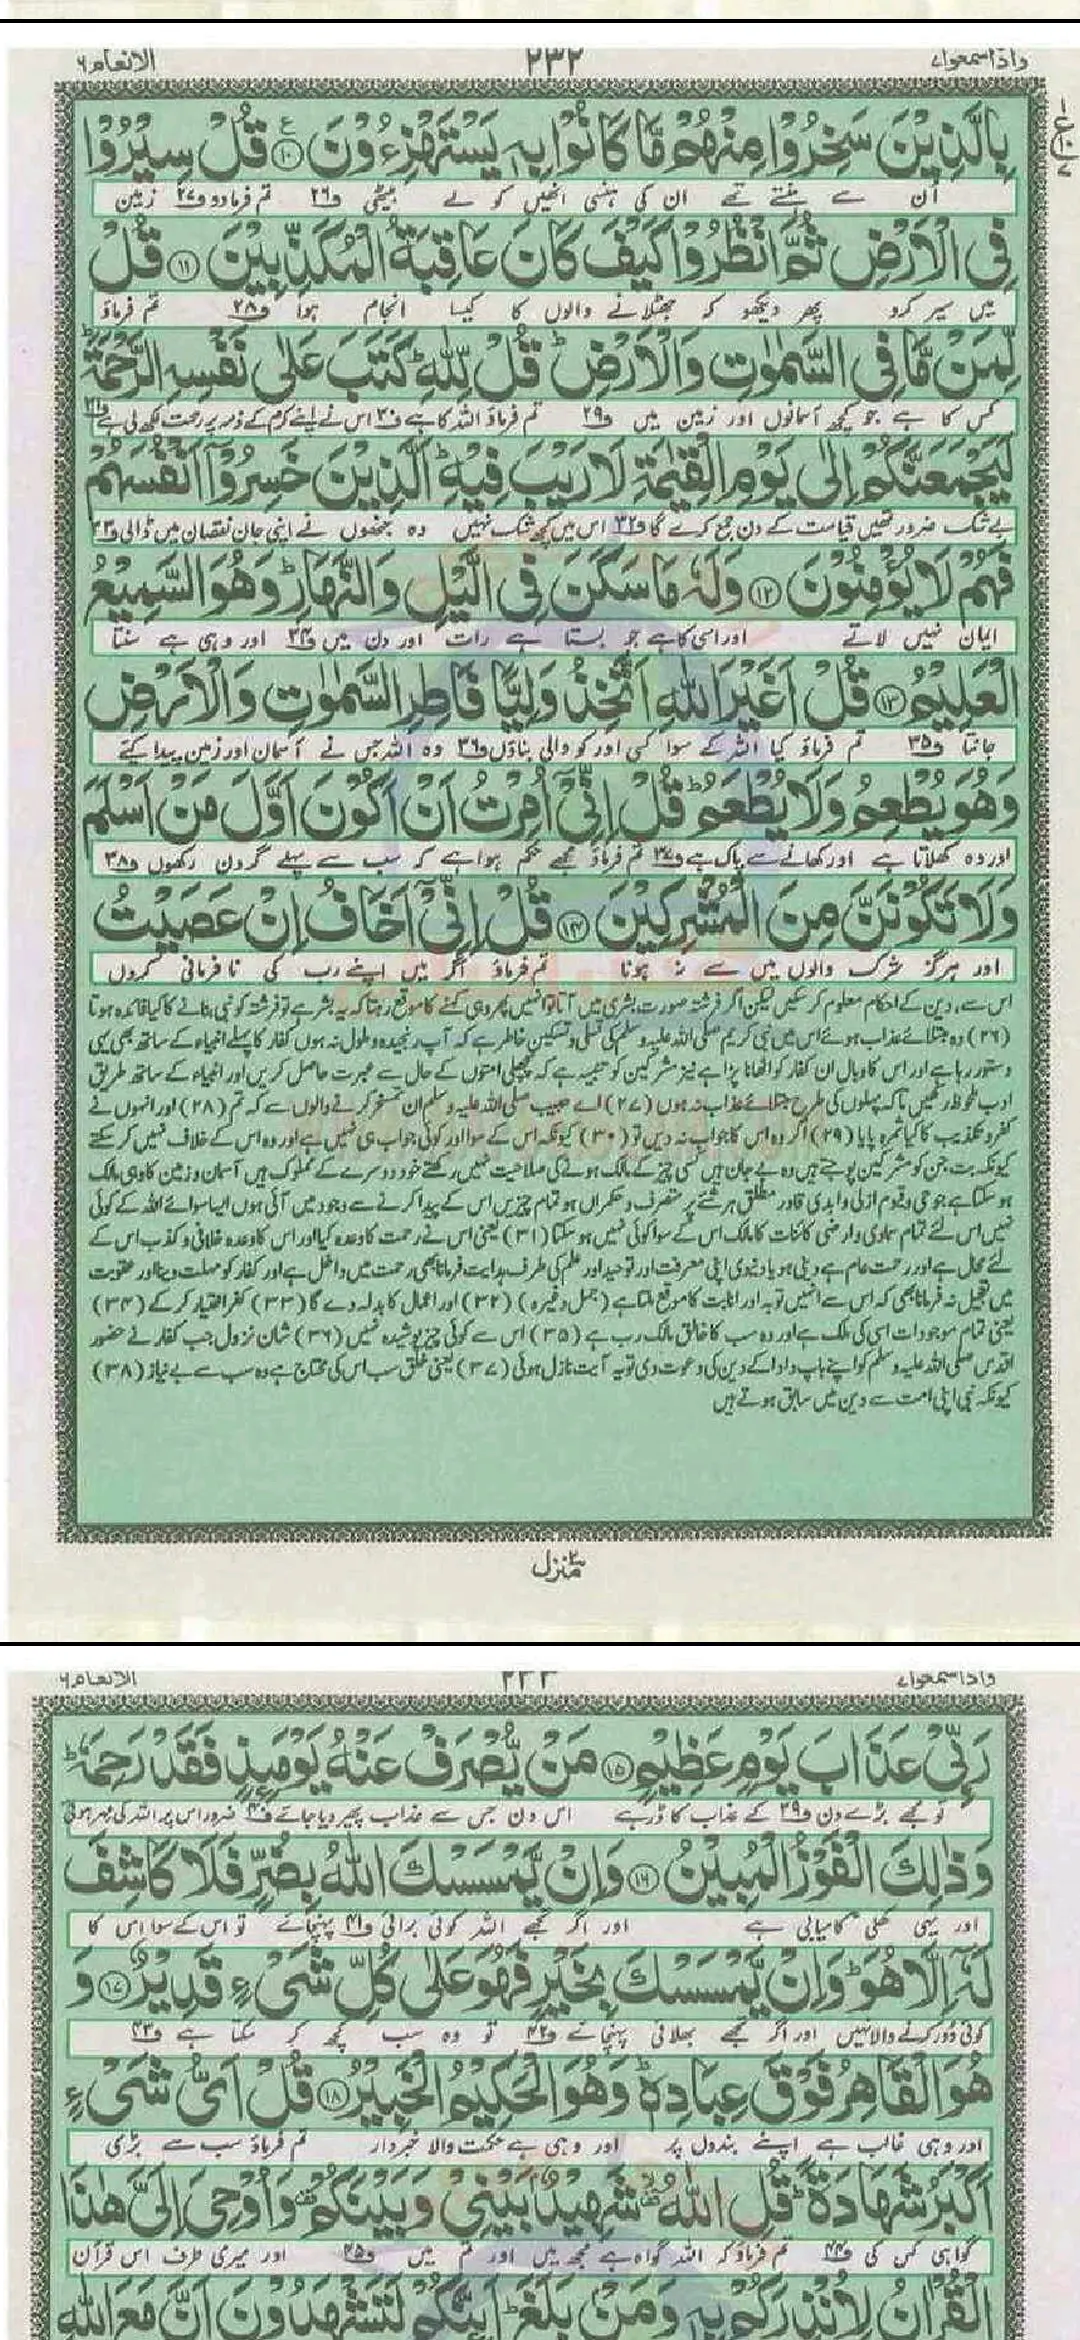 واذاسمعوا۷ ۲۳۲ الانعام۶
بِالَّذِيۡنَ سَخِرُوۡا مِنۡهُمۡ مَّا كَانُوۡا بِهٖ يَسۡتَهۡزِءُوۡنَ ﴿۱۰﴾ قُلۡ سِيۡرُوۡا
ان سے ہنستے تھے ان کی ہنسی انھیں کو لے بیٹھی ف۲۶ تم فرمادو ف۲۷ زمین
فِى الۡاَرۡضِ ثُمَّ انْظُرُوۡا كَيۡفَ كَانَ عَاقِبَةُ الۡمُكَذِّبِيۡنَ ﴿۱۱﴾ قُلْ
میں سیر کرو پھر دیکھو کہ جھٹلانے والوں کا کیسا انجام ہوا ف۲۸ تم فرماؤ
لِّمَنۡ مَّا فِى السَّمٰوٰتِ وَالۡاَرۡضِ‌ؕ قُلْ لِّلّٰهِ‌ؕ كَتَبَ عَلٰى نَفۡسِهِ الرَّحۡمَةَ ‌ؕ
کس کا ہے جو کچھ آسمانوں اور زمین میں ف۲۹ تم فرماؤ اللہ کا ہے ف۳۰ اس نے اپنے کرم کے ذمہ پر رحمت لکھ لی ہے ف۳۱
لَيَجۡمَعَنَّكُمۡ اِلٰى يَوۡمِ الۡقِيٰمَةِ لَا رَيۡبَ فِيۡهِ‌ؕ اَلَّذِيۡنَ خَسِرُوۡۤا اَنۡفُسَهُمۡ
بے شک ضرور تمھیں قیامت کے دن جمع کرے گا ف۳۲ اس میں کچھ شک نہیں وہ جنھوں نے اپنی جان نقصان میں ڈالی ف۳۳
فَهُمۡ لَا يُؤۡمِنُوۡنَ ﴿۱۲﴾ وَلَهٗ مَا سَكَنَ فِى الَّيۡلِ وَالنَّهَارِ‌ؕ وَهُوَ السَّمِيۡعُ
ایمان نہیں لاتے اور اسی کا ہے جو بستا ہے رات اور دن میں ف۳۴ اور وہی ہے سنتا
الۡعَلِيۡمُ ﴿۱۳﴾ قُلۡ اَغَيۡرَ اللّٰهِ اَتَّخِذُ وَلِيًّا فَاطِرِ السَّمٰوٰتِ وَالۡاَرۡضِ
جانتا ف۳۵ تم فرماؤ کیا اللہ کے سوا کسی اور کو والی بناؤں ف۳۶ وہ اللہ جس نے آسمان اور زمین پیدا کیے
وَهُوَ يُطۡعِمُ وَلَا يُطۡعَمُ‌ؕ قُلۡ اِنِّىۡۤ اُمِرۡتُ اَنۡ اَكُوۡنَ اَوَّلَ مَنۡ اَسۡلَمَ
اور وہ کھلاتا ہے اور کھانے سے پاک ہے ف۳۷ تم فرماؤ مجھے حکم ہوا ہے کہ سب سے پہلے گردن رکھوں ف۳۸
وَلَا تَكُوۡنَنَّ مِنَ الۡمُشۡرِكِيۡنَ ﴿۱۴﴾ قُلۡ اِنِّىۡۤ اَخَافُ اِنۡ عَصَيۡتُ
اور ہرگز شرک والوں میں سے نہ ہونا تم فرماؤ اگر میں اپنے رب کی نافرمانی کروں
اس سے، دین کے احکام معلوم کر سکیں لیکن اگر فرشتہ صورت بشری میں آتا تو انہیں پھر وہی کہنے کا موقع رہتا کہ یہ بشر ہے تو فرشتہ کو نبی بنانے کا کیا فائدہ ہوتا
(۲۶) وہ مبتلائے عذاب ہوئے اس میں نبی کریم صلی اللہ علیہ وسلم کی تسلی و تسکین خاطر ہے کہ آپ رنجیدہ و ملول نہ ہوں کفار کا پہلے انبیاء کے ساتھ بھی یہی
دستور رہا ہے اور اس کا وبال ان کفار کو اٹھانا پڑا ہے نیز مشرکین کو تنبیہ ہے کہ پچھلی امتوں کے حال سے عبرت حاصل کریں اور انبیاء کے ساتھ طریق
ادب ملحوظ رکھیں تاکہ پہلوں کی طرح مبتلائے عذاب نہ ہوں (۲۷) اے حبیب صلی اللہ علیہ وسلم ان تمسخر کرنے والوں سے کہ تم (۲۸) اور انہوں نے
کفر و تکذیب کا کیا ثمرہ پایا (۲۹) اگر وہ اس کا جواب نہ دیں تو (۳۰) کیونکہ اس کے سوا اور کوئی جواب ہی نہیں ہے اور وہ اس کے خلاف نہیں کر سکتے
کیونکہ بت جن کو مشرکین پوجتے ہیں وہ بے جان ہیں کسی چیز کے مالک ہونے کی صلاحیت نہیں رکھتے خود دوسرے کے مملوک ہیں آسمان و زمین کا وہی مالک
ہو سکتا ہے جو حی و قیوم ازلی و ابدی قادر مطلق ہر شئے پر متصرف و حکمراں ہو تمام چیزیں اس کے پیدا کرنے سے وجود میں آئی ہوں ایسا سوائے اللہ کے کوئی
نہیں اس لئے تمام سماوی و ارضی کائنات کا مالک اس کے سوا کوئی نہیں ہو سکتا (۳۱) یعنی اس نے رحمت کا وعدہ کیا اور اس کا وعدہ خلافی و کذب اس کے
لئے محال ہے اور رحمت عام ہے دینی ہو یا دنیوی اپنی معرفت اور توحید اور علم کی طرف ہدایت فرمانا بھی رحمت میں داخل ہے اور کفار کو مہلت دینا اور عقوبت
میں تعجیل نہ فرمانا بھی کہ اس سے انہیں توبہ اور انابت کا موقع ملتا ہے (جمل وغیرہ) (۳۲) اور اعمال کا بدلہ دے گا (۳۳) کفر اختیار کر کے (۳۴)
یعنی تمام موجودات اسی کی ملک ہے اور وہ سب کا خالق مالک رب ہے (۳۵) اس سے کوئی چیز پوشیدہ نہیں (۳۶) شان نزول جب کفار نے حضور
اقدس صلی اللہ علیہ وسلم کو اپنے باپ دادا کے دین کی دعوت دی تو یہ آیت نازل ہوئی (۳۷) یعنی خلق سب اس کی محتاج ہے وہ سب سے بے نیاز (۳۸)
کیونکہ نبی اپنی امت سے دین میں سابق ہوتے ہیں
منزل۲
واذاسمعوا۷ ۲۳۳ الانعام۶
رَبِّىۡ عَذَابَ يَوۡمٍ عَظِيۡمٍ ﴿۱۵﴾ مَنۡ يُّصۡرَفۡ عَنۡهُ يَوۡمَٮِٕذٍ فَقَدۡ رَحِمَهٗ‌ؕ
تو مجھے بڑے دن ف۳۹ کے عذاب کا ڈر ہے اس دن جس سے عذاب پھیر دیا جائے ف۴۰ ضرور اس پر اللہ کی مہر ہوئی
وَذٰلِكَ الۡفَوۡزُ الۡمُبِيۡنُ ﴿۱۶﴾ وَاِنۡ يَّمۡسَسۡكَ اللّٰهُ بِضُرٍّ فَلَا كَاشِفَ
اور یہی کھلی کامیابی ہے اور اگر تجھے اللہ کوئی برائی ف۴۱ پہنچائے تو اس کے سوا اس کا
لَهٗۤ اِلَّا هُوَ‌ؕ وَاِنۡ يَّمۡسَسۡكَ بِخَيۡرٍ فَهُوَ عَلٰى كُلِّ شَىۡءٍ قَدِيۡرٌ ﴿۱۷﴾ وَ
کوئی دور کرنے والا نہیں اور اگر تجھے بھلائی پہنچائے ف۴۲ تو وہ سب کچھ کر سکتا ہے ف۴۳
هُوَ الۡقَاهِرُ فَوۡقَ عِبَادِهٖ‌ؕ وَهُوَ الۡحَكِيۡمُ الۡخَبِيۡرُ ﴿۱۸﴾ قُلۡ اَىُّ شَىۡءٍ
اور وہی غالب ہے اپنے بندوں پر اور وہی ہے حکمت والا خبردار تم فرماؤ سب سے بڑی
اَكۡبَرُ شَهَادَةً ؕ قُلِ اللّٰهُ شَهِيۡدٌۢ بَيۡنِىۡ وَبَيۡنَكُمۡ‌ وَاُوۡحِىَ اِلَىَّ هٰذَا
گواہی کس کی ف۴۴ تم فرماؤ کہ اللہ گواہ ہے مجھ میں اور تم میں ف۴۵ اور میری طرف اس قرآن
الۡقُرۡاٰنُ لِاُنۡذِرَكُمۡ بِهٖ وَمَنۡۢ بَلَغَ‌ؕ اَٮِٕنَّكُمۡ لَتَشۡهَدُوۡنَ اَنَّ مَعَ اللّٰهِ